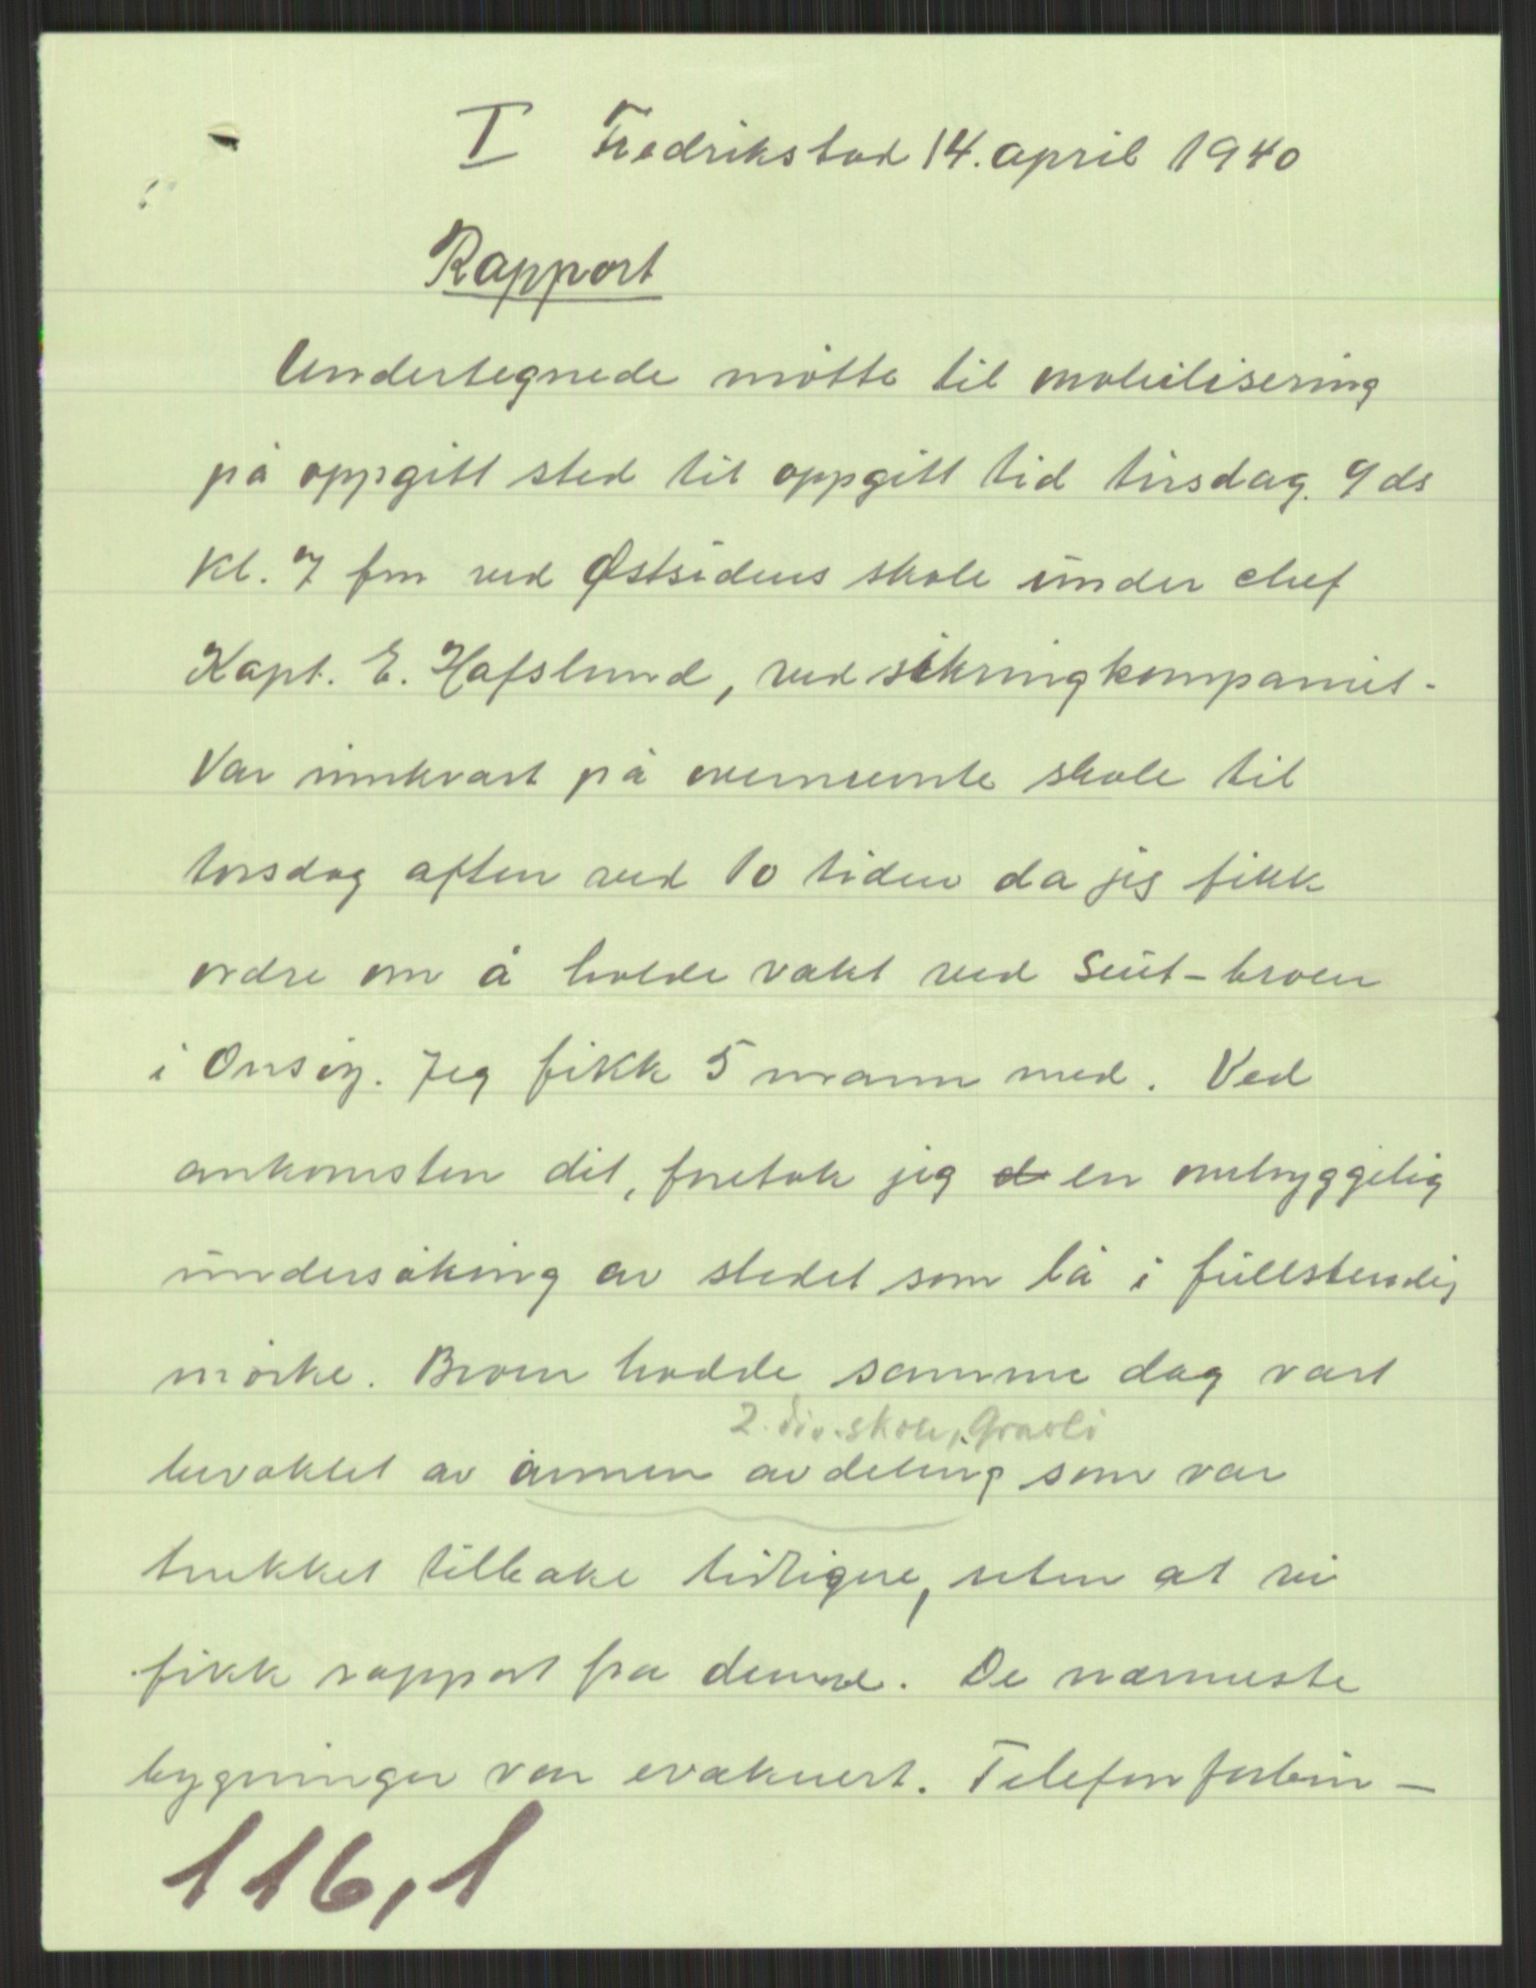 I Fredrikstad 14. april 1940
Rapport
Undertegnede møtte til mobilisering
på oppgitt sted til oppgitt tid tirsdag 9 ds
Kl. 7 fm ved Østsidens skole under chef
Kapt. E. Hafslund, ved sikringkompaniet.
Var innkvart på overnevnte skole til
torsdag aften ved 10 tiden da jeg fikk
ordre om å holde vakt ved Seut-broen
i Onsøy. Jeg fikk 5 mann med. Ved
ankomsten dit, foretok jeg en omhyggelig
undersøking av stedet som lå i fullstendig
mørke. Broen hadde samme dag vært
2. div. skole,
bevoktet av annen avdeling som var
trukket tilbake tidligere, uten at vi
fikk rapport fra denne. De nærmeste
bygninger var evakuert. Telefonforbin-
116,1